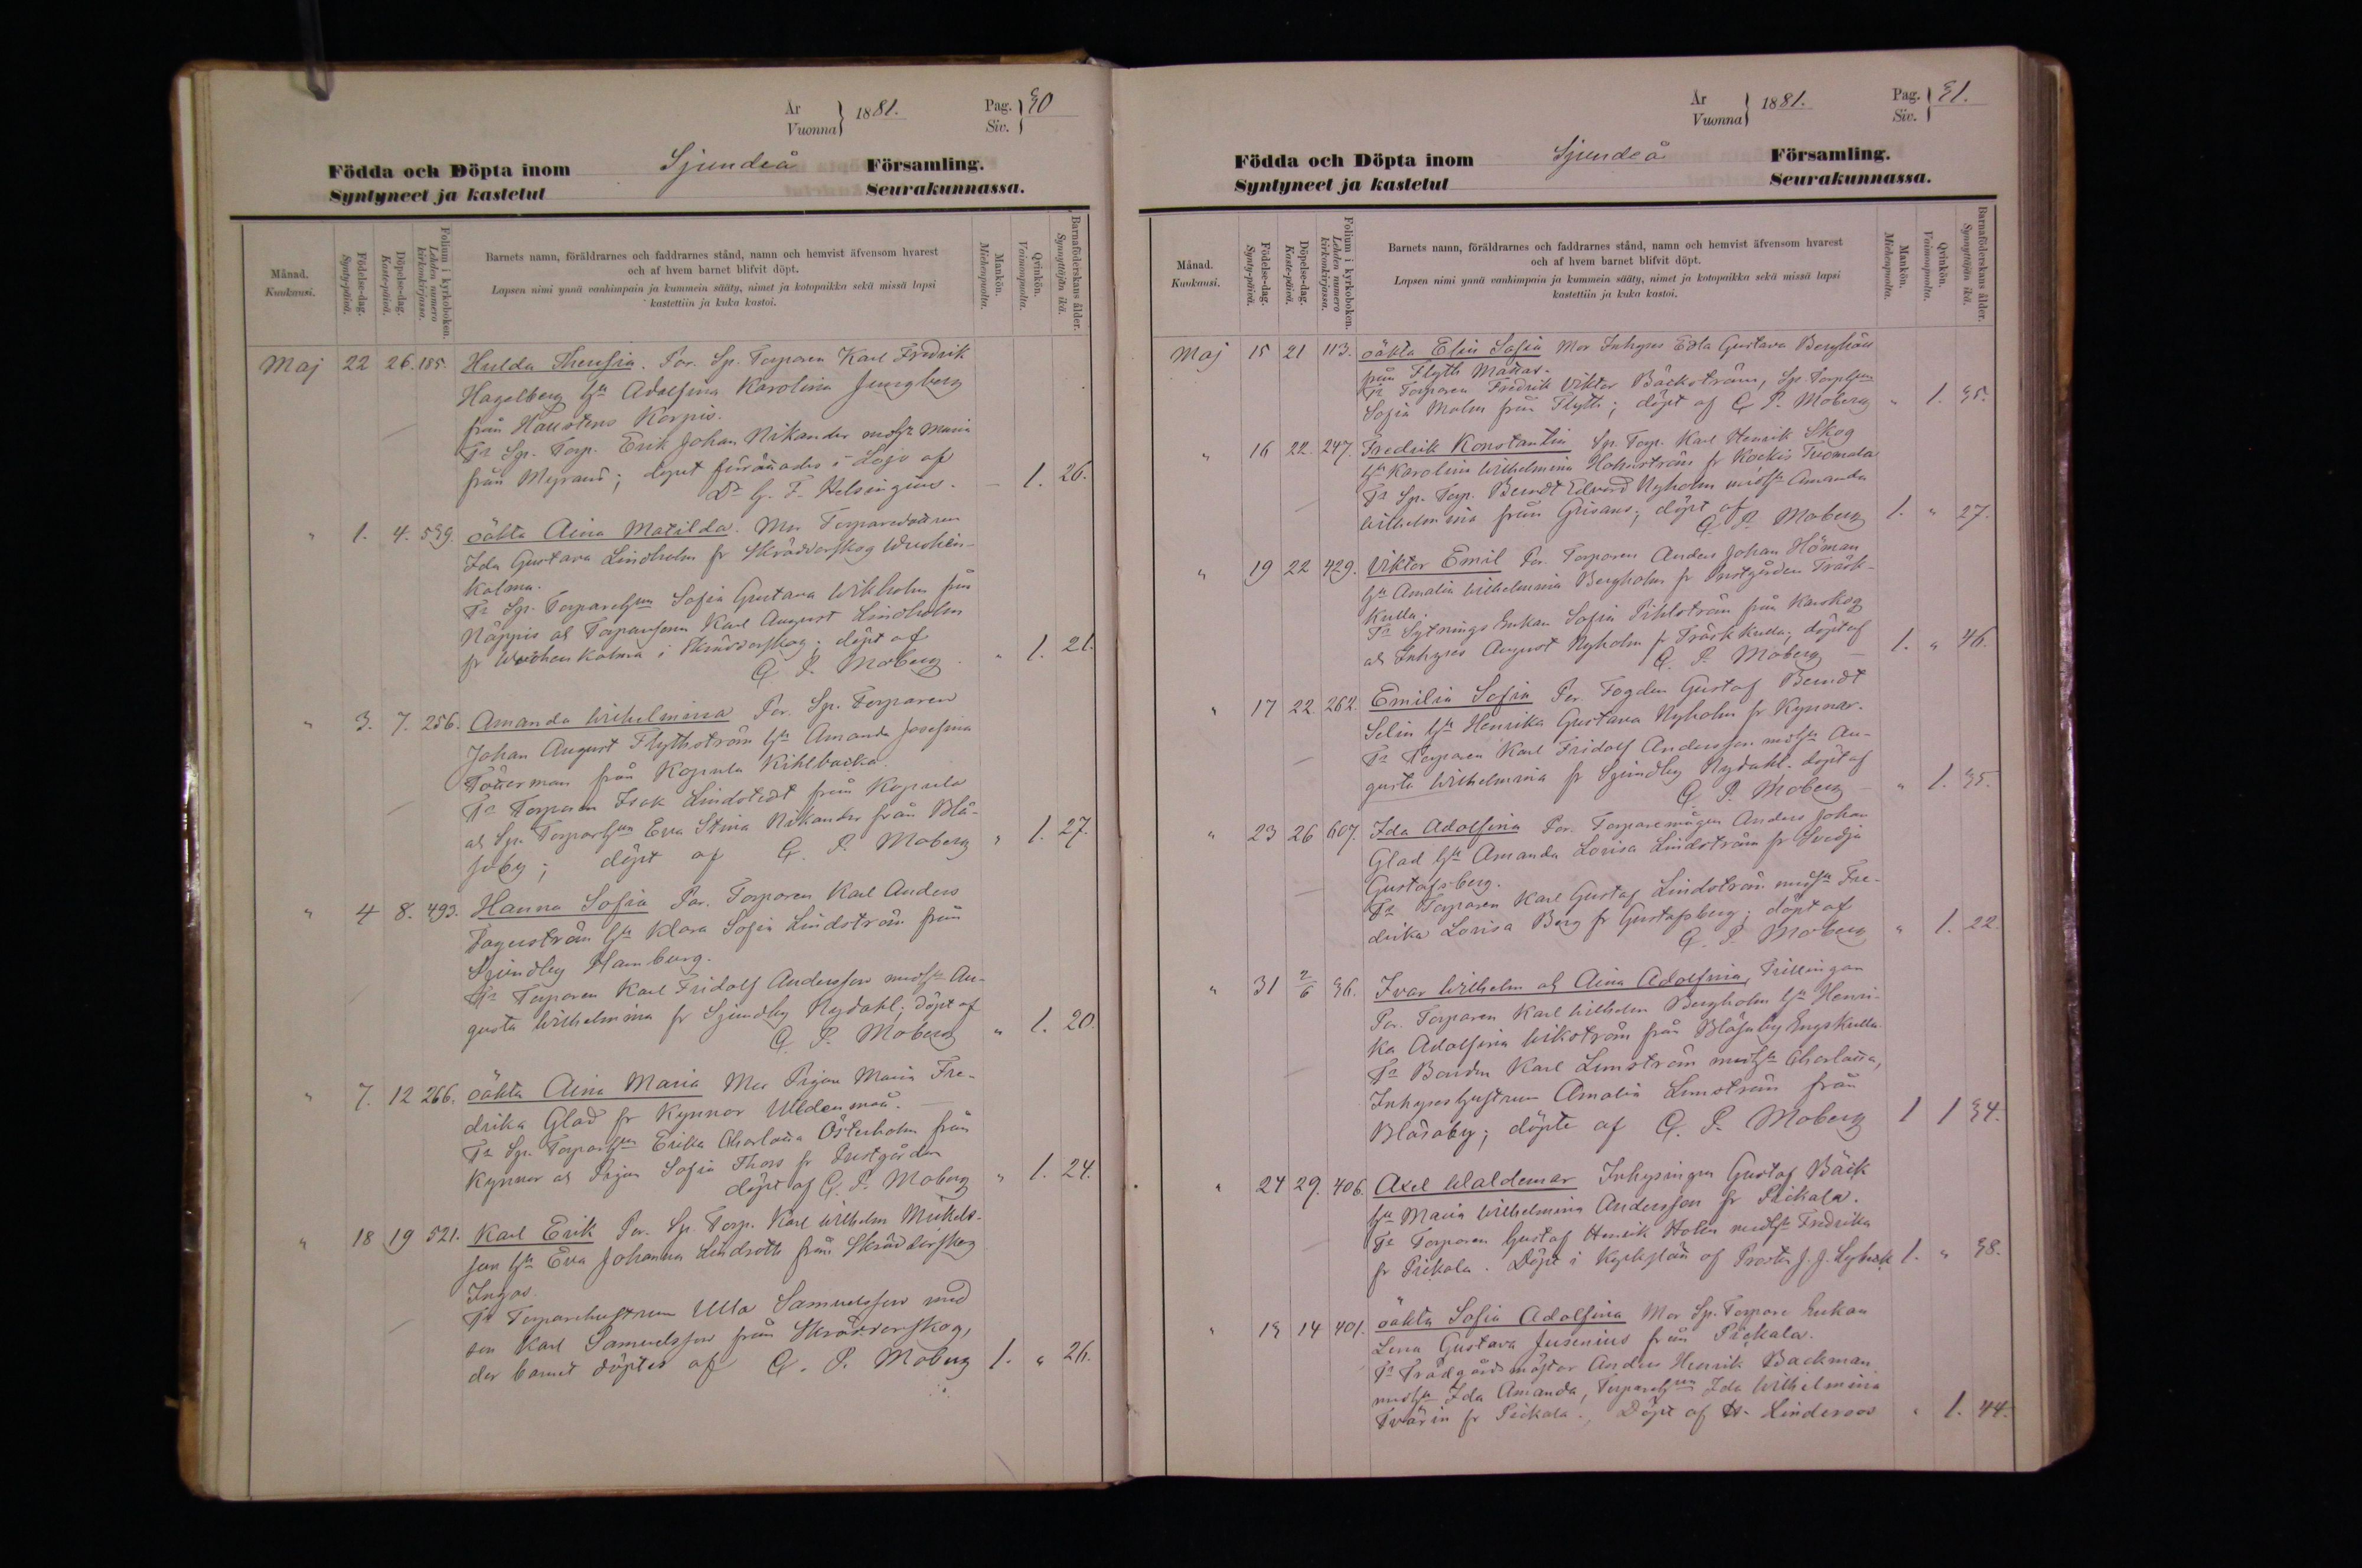 År
Vuonna
1881.
Pag.
Siv.
30
Födda och Döpta inom Sjundeå Församling.
Syntyneet ja kastetut Seurakunnassa.
Månad.
Kuukausi.
Födelse-dag.
Synty-päivä.
Döpelse-dag.
Kaste-päivä.
Folium i kyrkoboken.
Lehden numero
kirkonkirjassa.
Barnets namn, föräldrarnes och faddrarnes stånd, namn och hemvist äfvensom hvarest
och af hvem barnet blifvit döpt.
Lapsen nimi ynnä vanhimpain ja kummein sääty, nimet ja kotopaikka sekä missä lapsi
kastettiin ja kuka kastoi.
Mankön.
Miehenpuolta.
Qvinkön.
Vaimonpuolta.
Barnaföderskans ålder.
Synnyttäjän ikä.
Maj 22 26. 185. Hulda Theresia. För. Sp. Torparen Karl Fredrik
Hagelberg hu Adolfina Karolina Ljungberg
från Haustens Korpis.
Fr Sp. Torp. Erik Johan Nikander m hu Maria
från Myrans; dopet förrättades i Lojo af
Dr G. F. Helsingius. — 1. 26.
" 1. 4. 539. oäkta Aina Matilda. Mor Torparedottren
Ida Gustava Lindholm fr Skräddarskog Wuohen-
kolma.
Fr Sp. Torparehun Sofia Gustava Wikholm från
Näppis och Torparesonen Karl August Lindholm
fr Wuohenkolma i Skräddarskog; döpt af
G. P. Moberg. " 1. 21.
" 3. 7. 256. Amanda Wilhelmina För. Sp. Torparen
Johan August Flythström hu Amanda Josefina
Töttterman från Kopula Kihlbacka.
Fr Torparen Isak Lindstedt från Kopula
och Sp. Torparhun Eva Stina Nikander från Blå-
soby; döpt af G. P. Moberg " 1. 27.
" 4 8. 493. Hanna Sofia För. Torparen Karl Anders
Fagerström hu Klara Sofia Lindström från
Sjundby Hamburg.
Fr Torparen Karl Fridolf Andersson m hu Au-
gusta Wilhelmina fr Sjundby Nydahl; döpt af
G. P. Moberg " 1. 20.
" 7. 12 266. oäkta Aina Maria Mor Pigan Maria Fre-
drika Glad fr Kynnar
Fr Sp. Torparhun Erika Charlotta Österholm från
Kynnar och Pigan Sofia Thors fr Prestgården
döpt af G. P. Moberg " 1. 24.
" 18 19 521. Karl Erik För. Sp. Torp. Karl Wilhelm Mickels-
son hu Eva Johanna Lindroth från Skräddarskog
Ingas.
Fr Torparehustrun Ulla Samuelsson med
son Karl Samuelsson från Skräddarskog,
der barnet döptes af G. P. Moberg 1. " 26.
År
Vuonna
1881.
Pag.
Siv.
31.
Födda och Döpta inom Sjundeå Församling.
Syntyneet ja kastetut Seurakunnassa.
Månad.
Kuukausi.
Födelse-dag.
Synty-päivä.
Döpelse-dag.
Kaste-päivä.
Folium i kyrkoboken.
Lehden numero
kirkonkirjassa.
Barnets namn, föräldrarnes och faddrarnes stånd, namn och hemvist äfvensom hvarest
och af hvem barnet blifvit döpt.
Lapsen nimi ynnä vanhimpain ja kummein sääty, nimet ja kotopaikka sekä missä lapsi
kastettiin ja kuka kastoi.
Mankön.
Miehenpuolta.
Qvinkön.
Vaimonpuolta.
Barnaföderskans ålder.
Synnyttäjän ikä.
Maj 15 21 113. oäkta Elin Sofia Mor Inhyses Edla Gustava Berghäll
från Flyth Mattas.
Fr Torparen Fredrik Viktor Bäckström, Sp. Torphun
Sofia Malm från Flyth; döpt af G. P. Moberg " 1. 35.
" 16 22. 247. Fredrik Konstantin Sp. Torp. Karl Henrik Skog
hu Karolina Wilhelmina Holmström fr Kockis Tuomala
Fr Sp. Torp. Berndt Edvard Nyholm m hu Amanda
Wilhelmina från Grisans; döpt af
G. P. Moberg 1. " 27.
" 19 22 429. Viktor Emil För. Torparen Anders Johan Höman
hu Amalia Wilhelmina Bergholm fr Prestgården Träsk-
kulla.
Fr Sytnings Enkan Sofia Pihlström från Karskog
och Inhyses August Nyholm fr Träskkulla; döpt af
G. P. Moberg — 1. " 46.
" 17 22. 262. Emilia Sofia För. Fogden Gustaf Berndt
Selin hu Henrika Gustava Nyholm fr Kynnar.
Fr Torparen Karl Fridolf Andersson m hu Au-
gusta Wilhelmina fr Sjundby Nydahl. döpt af
G. P. Moberg — " 1. 35.
" 23 26 607. Ida Adolfina För. Torparemågen Anders Johan
Glad hu Amanda Lovisa Lindström fr Svidja
Gustafsberg.
Fr Torparen Karl Gustaf Lindström m hu Fre-
drika Lovisa Berg fr Gustafsberg; döpt af
G. P. Moberg " 1. 22.
" 31 2/6 36. Ivar Wilhelm och Aina Adolfina, Tvillingar
För. Torparen Karl Wilhelm Bergholm hu Henri-
ka Adolfina Wikström från Blåsaby Engskulla.
Fr Bonden Karl Lemström m hu Charlotta,
Inhyseshustrun Amalia Lemström från
Blåsaby; döpte af G. P. Moberg 1 1 34.
" 24 29. 406. Axel Waldemar Inhysingen Gustaf Bäck
hu Maria Wilhelmina Andersson fr Pickala.
Fr Torparen Gustaf Henrik Holm m hu Fredrika
fr Pickala. Döpt i Kyrkslätt af Prosten J. J. Lybeck 1. " 38.
" 13 14 401. oäkta Sofia Adolfina Mor Sp. Torpare Enkan
Lena Gustava Jusenius från Pickala.
Fr Trädgårdsmästar Anders Henrik Backman
m hu Ida Amanda, Torparehun Ida Wilhelmina
Tvärin fr Pickala. Döpt af H. Linderoos " 1. 44.